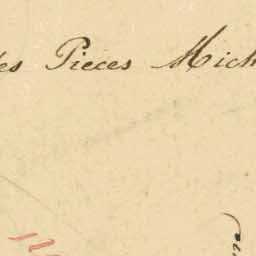 es Pieces Mich